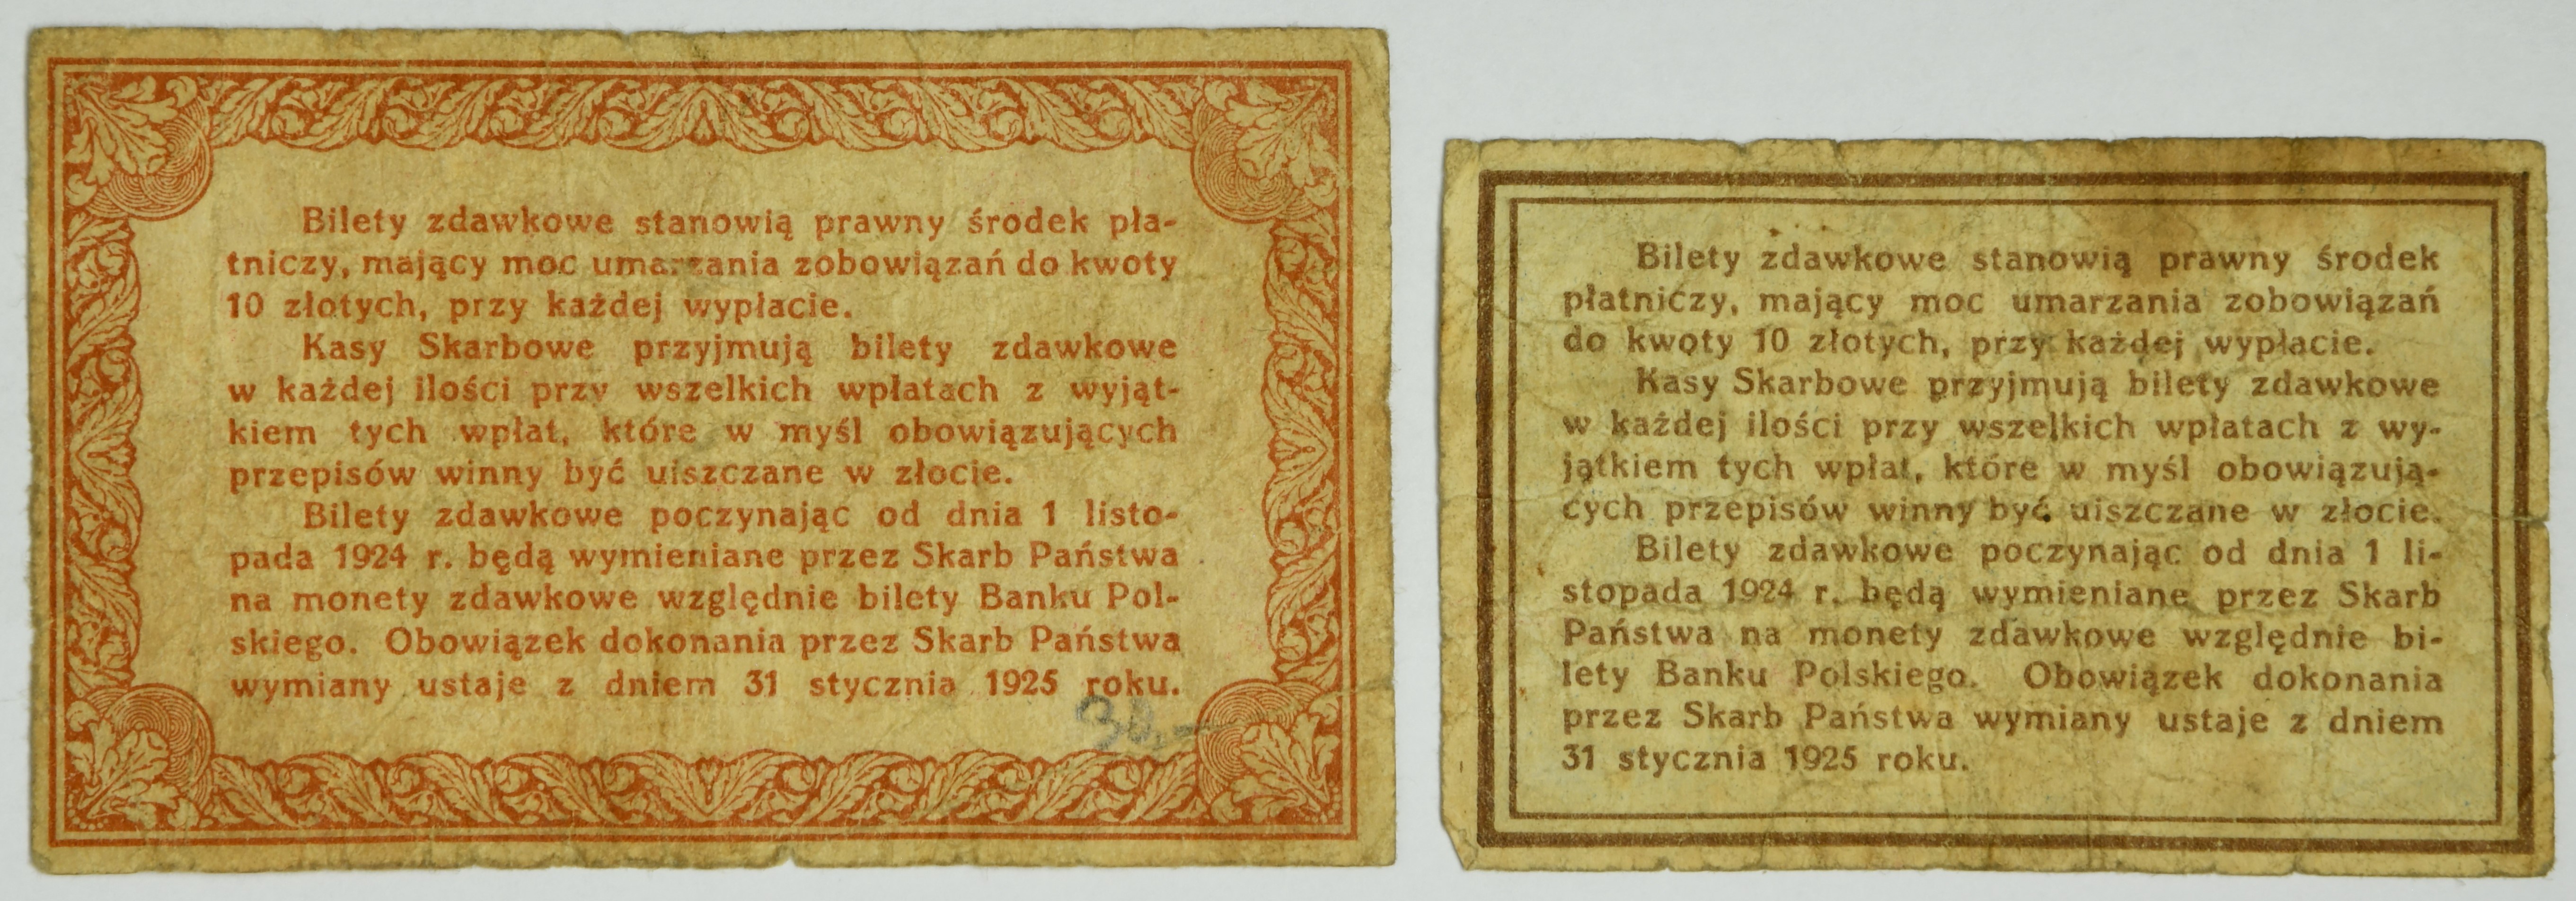 Bilety zdawkowe stanowią prawny środek pła-
tniczy, mający moc umarzania zobowiązań do kwoty
10 złotych, przy każdej wypłacie.
Kasy Skarbowe przyjmują bilety zdawkowe
w każdej ilości przy wszelkich wpłatach z wyjąt-
kiem tych wpłat, które w myśl obowiązujących
przepisów winny być uiszczane w złocie.
Bilety zdawkowe poczynając od dnia 1 listo-
pada 1924 r. będą wymieniane przez Skarb Państwa
na monety zdawkowe względnie bilety Banku Pol-
skiego. Obowiązek dokonania przez Skarb Państwa
wymiany ustaje z dniem 31 stycznia 1925 roku.
30,-
Bilety zdawkowe stanowią prawny środek
płatniczy, mający moc umarzania zobowiązań
do kwoty 10 złotych, przy każdej wypłacie.
Kasy Skarbowe przyjmują bilety zdawkowe
w każdej ilości przy wszelkich wpłatach z wy-
jątkiem tych wpłat, które w myśl obowiązują-
cych przepisów winny być uiszczane w złocie.
Bilety zdawkowe poczynając od dnia 1 li-
stopada 1924 r. będą wymieniane przez Skarb
Państwa na monety zdawkowe względnie bi-
lety Banku Polskiego. Obowiązek dokonania
przez Skarb Państwa wymiany ustaje z dniem
31 stycznia 1925 roku.